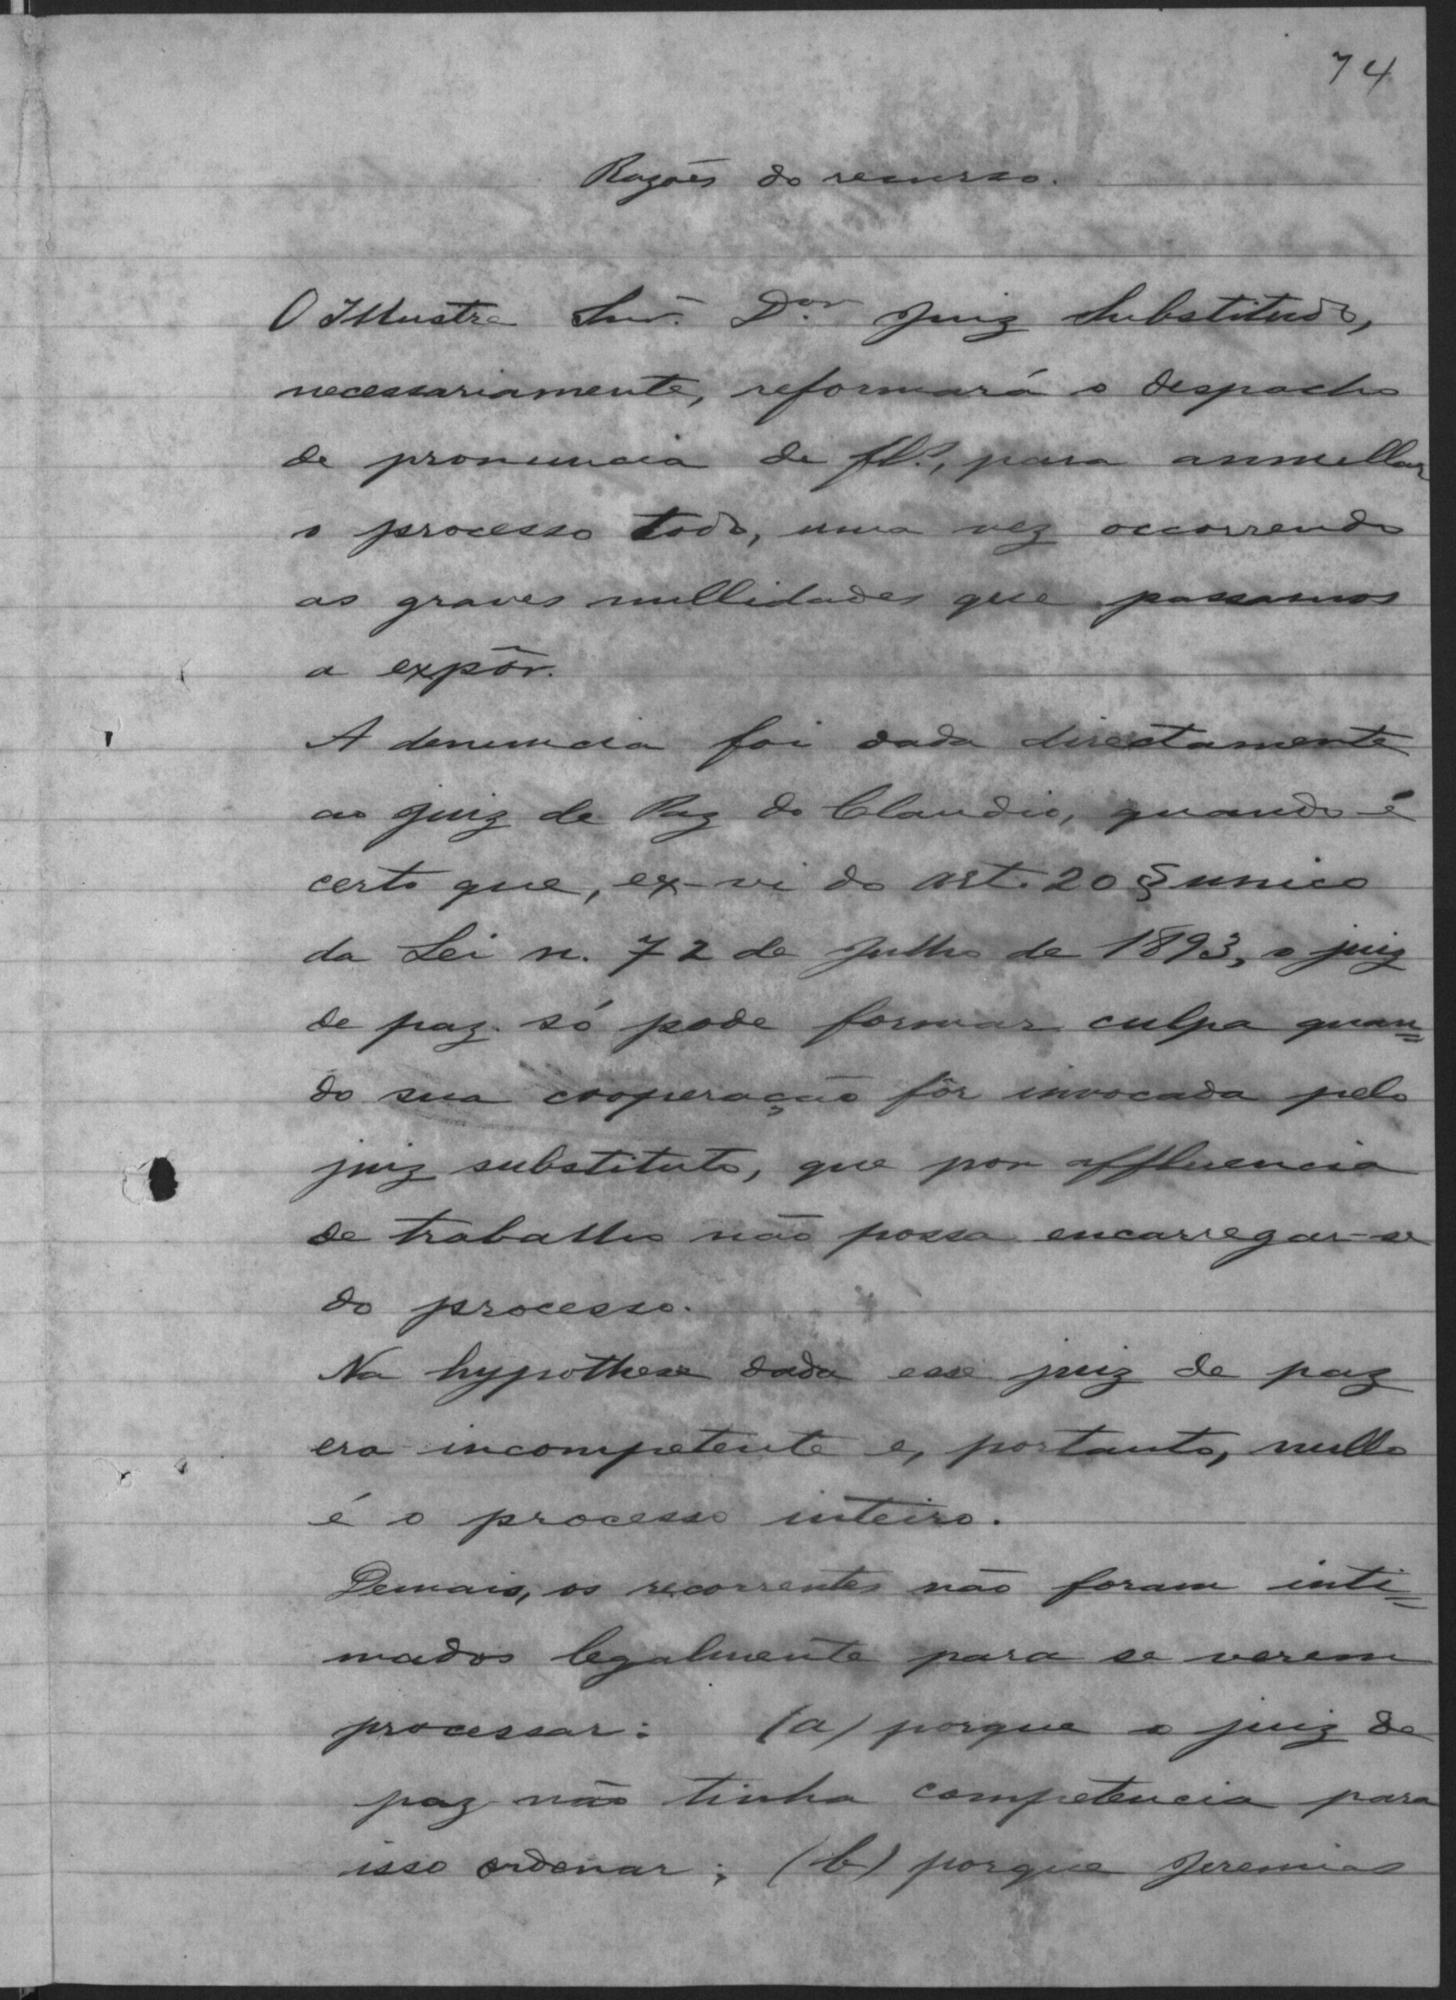 74
Razões do recurso.
O Illustre Snr. Dor. Juiz Substituto,
necessariamente, reformará o despacho
de pronuncia de fls., para annullar
o processo todo, uma vez occorrendo
as graves nullidades que passamos
a expôr.
A denuncia foi dada directamente
ao Juiz de Paz do Claudio, quando é
certo que, ex-vi do art. 20 § unico
da Lei n. 72 de Julho de 1893, o juiz
de paz só pode formar culpa quan=
do sua cooperação fôr invocada pelo
juiz substituto, que por affluencia
de trabalho não possa encarregar-se
do processo.
Na hypothese dada esse juiz de paz
era incompetente e, portanto, nullo
é o processo inteiro.
Demais, os recorrentes não foram inti=
mados legalmente para se verem
processar: (a) porque o juiz de
paz não tinha competencia para
isso ordenar; (b) porque Jeremias